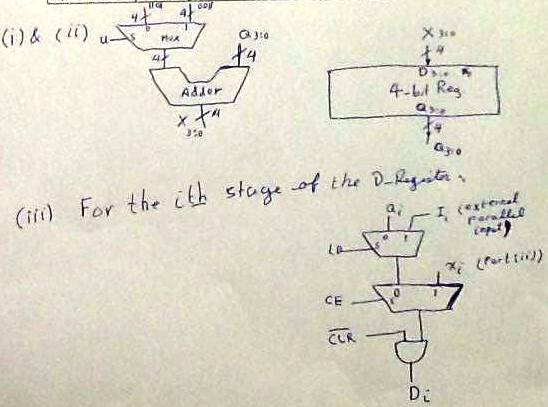 4 1101 4 0011
(i) & (ii) u S 0 1 Mux Q3:0
4 4
Adder
X 4
3:0
X 3:0
4
D3:0
4-bit Reg
Q3:0
4
Q3:0
(iii) For the ith stage of the D-Register,
Qi Ii (external parallel input)
LD S 0 1
xi (Part(ii))
CE 0 1
CLR
Di